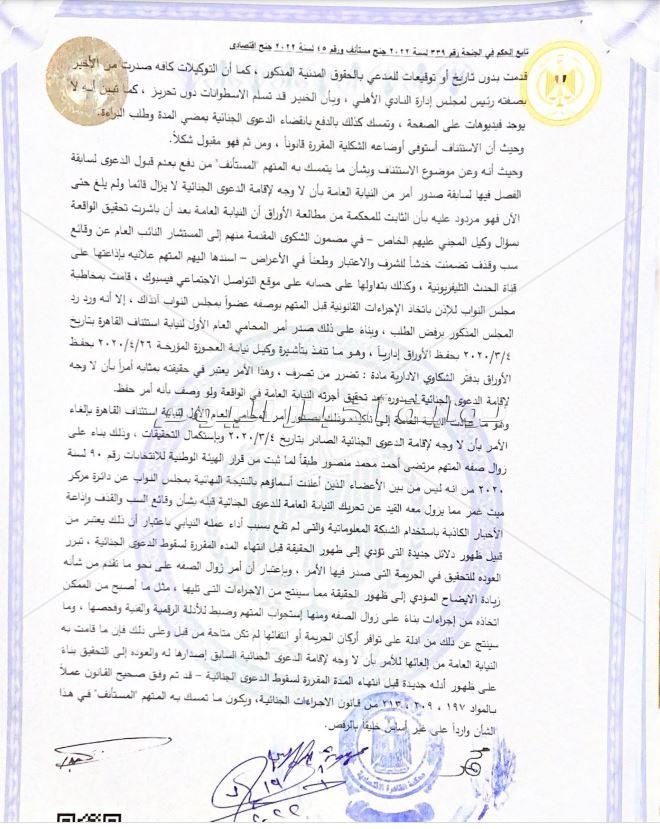 تابع الحكم في الجنحة رقم ٣٣٩ لسنة ٢٠٢٢ جنح مستأنف ورقم ٤٥ لسنة ٢٠٢٢ جنح اقتصادى
قدمت بدون تاريخ أو توقيعات للمدعي بالحقوق المدنية المذكور ، كما أن التوكيلات كافه صدرت من الأخير
بصفته رئيس لمجلس إدارة النادي الأهلي ، وبأن الخبير قد تسلم الاسطوانات دون تحريز ، كما تبين أنه لا
يوجد فيديوهات على الصفحة ، وتمسك كذلك بالدفع بانقضاء الدعوى الجنائية بمضي المدة وطلب البراءة.
وحيث أن الاستئناف أستوفى أوضاعه الشكلية المقررة قانوناً ، ومن ثم فهو مقبول شكلاً.
وحيث أنه وعن موضوع الاستئناف وبشأن ما يتمسك به المتهم "المستأنف" من دفع بعدم قبول الدعوى لسابقة
الفصل فيها لسابقة صدور أمر من النيابة العامة بأن لا وجه لإقامة الدعوى الجنائية لا يزال قائما ولم يلغ حتى
الآن فهو مردود عليه بأن الثابت للمحكمة من مطالعة الأوراق أن النيابة العامة بعد أن باشرت تحقيق الواقعة
بسؤال وكيل المجني عليهم الخاص – في مضمون الشكوى المقدمة منهم إلى المستشار النائب العام عن وقائع
سب وقذف تضمنت خدشاً للشرف والاعتبار وطعناً في الأعراض – اسندها اليهم المتهم علانيه بإذاعتها على
قناة الحدث التليفزيونية ، وكذلك بتفاولها على حسابه على موقع التواصل الاجتماعي فيسبوك ، قامت بمخاطبة
مجلس النواب للإذن باتخاذ الإجراءات القانونية قبل المتهم بوصفه عضواً بمجلس النواب آنذاك ، إلا أنه ورد رد
المجلس المذكور برفض الطلب ، وبناءً على ذلك صدر أمر المحامي العام الأول لنيابة استئناف القاهرة بتاريخ
٢٠٢٠/٣/٤ بحفظ الأوراق إدارياً ، وهو ما تنفذ بتأشيرة وكيل نيابة العجوزة المؤرخة ٢٠٢٠/٤/٢٦ بحفظ
الأوراق بدفتر الشكاوي الادارية مادة : تضرر من تصرف ، وهذا الأمر يعتبر في حقيقته بمثابه أمراً بأن لا وجه
لإقامة الدعوى الجنائية لصدوره بعد تحقيق أجرته النيابة العامة في الواقعة ولو وصف بأنه أمر حفظ.
وهو ما النيابة العامة إلى تأكيده وذلك بصدور أمر المحامي العام الأول لنيابة استئناف القاهرة بإلغاء
الأمر بأن لا وجه لإقامة الدعوى الجنائية الصادر بتاريخ ٢٠٢٠/٣/٤ وبإستكمال التحقيقات ، وذلك بناء على
زوال صفه المتهم مرتضى أحمد محمد منصور طبقاً لما ثبت من قرار الهيئة الوطنية للانتخابات رقم ٩٠ لسنة
٢٠٢٠ من انه ليس من بين الأعضاء الذين أعلنت أسماؤهم بالنتيجة النهائية بمجلس النواب عن دائرة مركز
ميت غمر مما يزول معه القيد عن تحريك النيابة العامة للدعوى الجنائية قبله بشأن وقائع السب والقذف وإذاعة
الأخبار الكاذبة باستخدام الشبكة المعلوماتية والتى لم تقع بسبب أداء عمله النيابي باعتبار أن ذلك يعتبر من
قبيل ظهور دلائل جديدة التى تؤدي إلى ظهور الحقيقة قبل انتهاء المده المقررة لسقوط الدعوى الجنائية ، تبرر
العوده للتحقيق في الجريمة التى صدر فيها الأمر ، وبإعتبار أن أمر زوال الصفه على نحو ما تقدم من شأنه
زيادة الايضاح المؤدي إلى ظهور الحقيقة مما سينتج من الاجراءات التى تليها ، مثل ما أصبح من الممكن
اتخاذه من إجراءات بناءً على زوال الصفه ومنها إستجواب المتهم وضبط للأدلة الرقمية والفنية وفحصها ، وما
سينتج عن ذلك من ادلة على توافر أركان الجريمة أو انتفائها لم تكن متاحة من قبل وعلى ذلك فإن ما قامت به
النيابة العامة من إلغائها للأمر بأن لا وجه لإقامة الدعوى الجنائية السابق إصدارها له والعوده إلى التحقيق بناءً
على ظهور أدله جديدة قبل انتهاء المدة المقررة لسقوط الدعوى الجنائية – قد تم وفق صحيح القانون عملاً
بالمواد ١٩٧ ، ٢٠٩ ، ٢١٣ من قانون الاجراءات الجنائية، ويكون ما تمسك به المتهم "المستأنف" في هذا
الشأن وارداً على غير أساس خليقاً بالرفض.